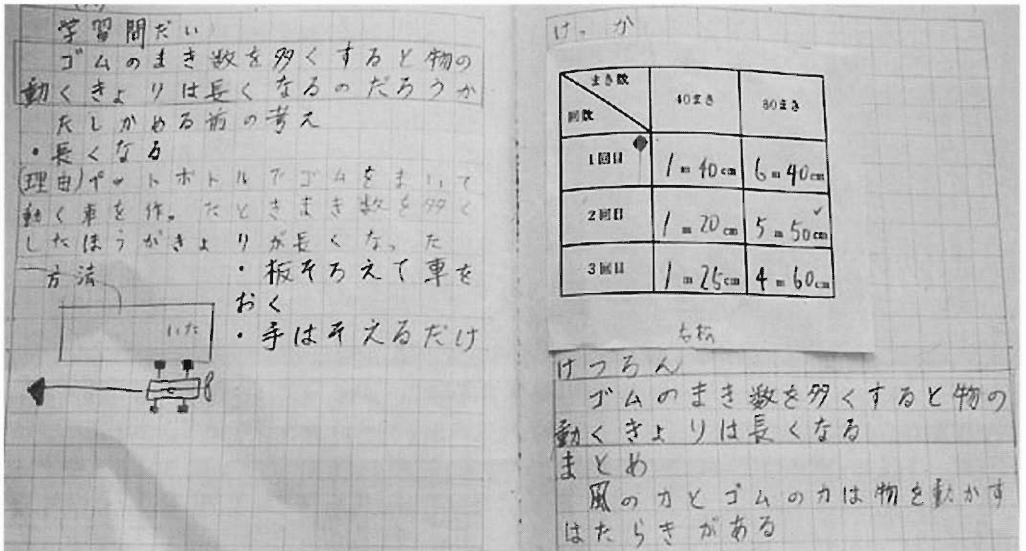 学習問だい
ゴムのまき数を多くすると物の
動くきょりは長くなるのだろうか
たしかめる前の考え
・長くなる
(理由)ペットボトルでゴムをまいて
動く車を作った
ときまき数を多く
したほうがきょりが長くなった
方法
・板そろえて車を
おく
いた
・手はそえるだけ
けっか
まき数
回数
40まき
80まき
1回目
1m40cm
6m40cm
2回目
1m20cm
5m50cm
3回目
1m25cm
4m60cm
けつろん
ゴムのまき数を多くすると物の
動くきょりは長くなる
まとめ
風の力とゴムの力は物を動かす
はたらきがある